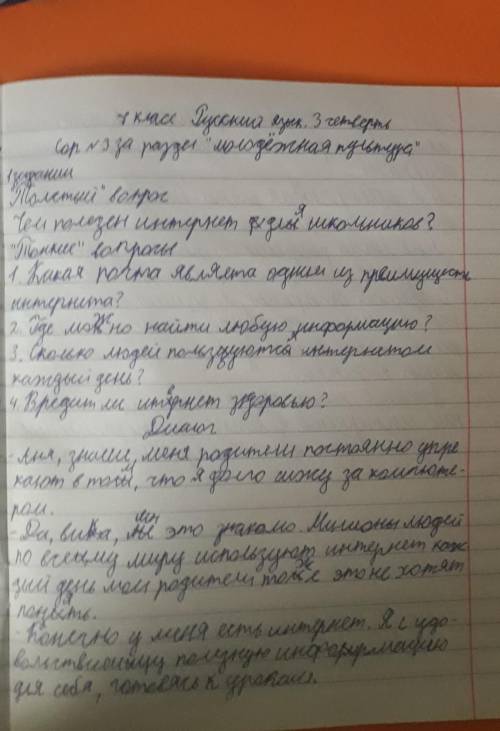 7 класс Русский язык. 3 четверть
Сор №3 за раздел "молодёжная культура"
1 задании
"Толстый" вопрос
Чем полезен интернет для школьников?
"Тонкие" вопросы
1. Какая почта является одним из преимуществ
интернета?
2. Где можно найти любую информацию?
3. Сколько людей пользуются интернетом
каждый день?
4. Вредит ли интернет здоровью?
Диалог
- Аня, знаеш, меня родители постоянно упре
кают в том, что я долго сижу за компюте-
ром.
- Да, вика, мне это знакомо. Милионы людей
по всему миру используют интернет каж
дий день мои родители тоже это не хотят
понять.
- Конечно у меня есть интернет. Я с удо-
вольствием ищу полезную информацию
для себя, готовясь к урокам.